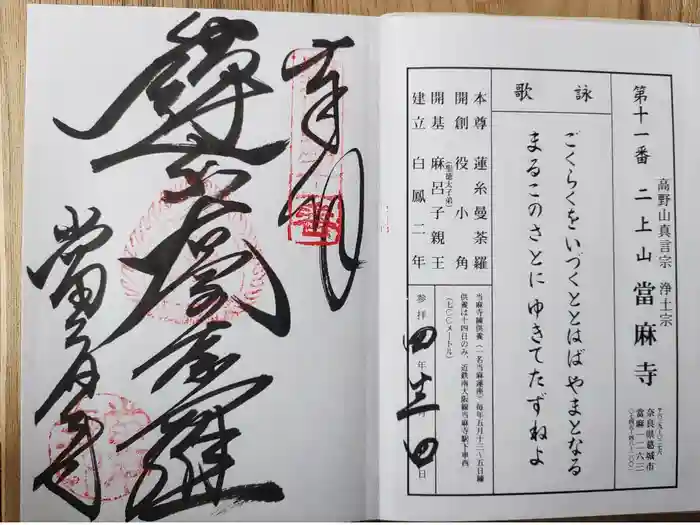 第十一番 二上山 當麻寺
高野山真言宗 浄土宗
〒六三九−〇二七六
奈良県葛城市
當麻一二六三
詠歌
ごくらくをいづくととはばやまとなる
まるこのさとにゆきてたずねよ
本尊 蓮糸曼荼羅
開創 役小角
開基 麻呂子親王
(聖徳太子弟)
建立 白鳳二年
当麻寺練供養(一名当麻蓮座)毎年五月十三〜五日練
供養は十四日のみ、近鉄南大阪線当麻寺駅下車西
(七〇〇メートル)
参拝 四年 月 日
奉拝
蓮糸大曼荼羅
當麻寺